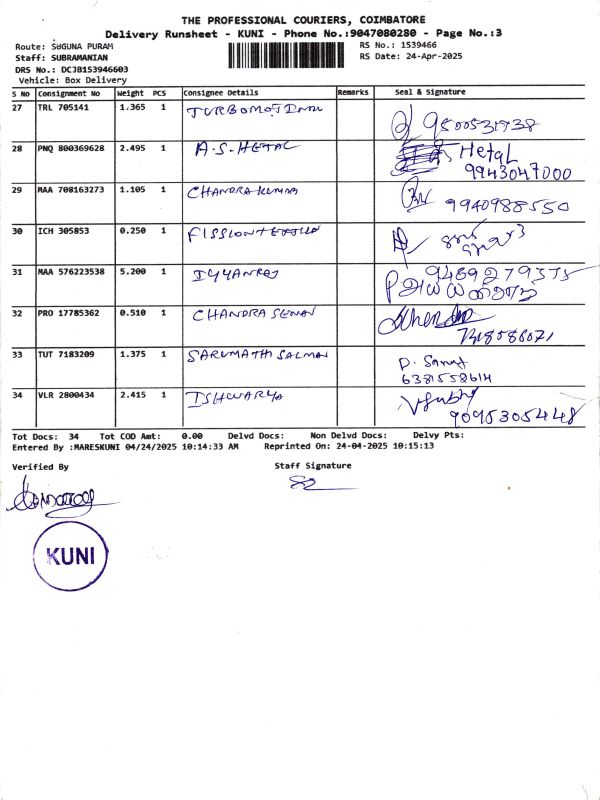 THE PROFESSIONAL COURIERS, COIMBATORE
Delivery Runsheet - KUNI - Phone No.:9047080280 - Page No.:3
Route: SUGUNA PURAM RS No.: 1539466
Staff: SUBRAMANIAN RS Date: 24-Apr-2025
DRS No.: DCJB153946603
Vehicle: Box Delivery
S No Consignment No Weight PCS Consignee Details Remarks Seal & Signature
27 TRL 705141 1.365 1 9500531938
28 PNQ 800369628 2.495 1 A.S-HETAL Hetal
9943047000
29 MAA 708163273 1.105 1 CHANDRAKUMAR
9940988550
30 ICH 305853 0.250 1
31 MAA 576223538 5.200 1 IYYANRAJ 9489279375
32 PRO 17785362 0.510 1 CHANDRA SENAN
33 TUT 7183209 1.375 1 SARUMATHI SALMAN
6381558614
34 VLR 2800434 2.415 1 ISHWARYA
9095305448
Tot Docs: 34 Tot COD Amt: 0.00 Delvd Docs: Non Delvd Docs: Delvy Pts:
Entered By :MARESKUNI 04/24/2025 10:14:33 AM Reprinted On: 24-04-2025 10:15:13
Verified By Staff Signature
KUNI